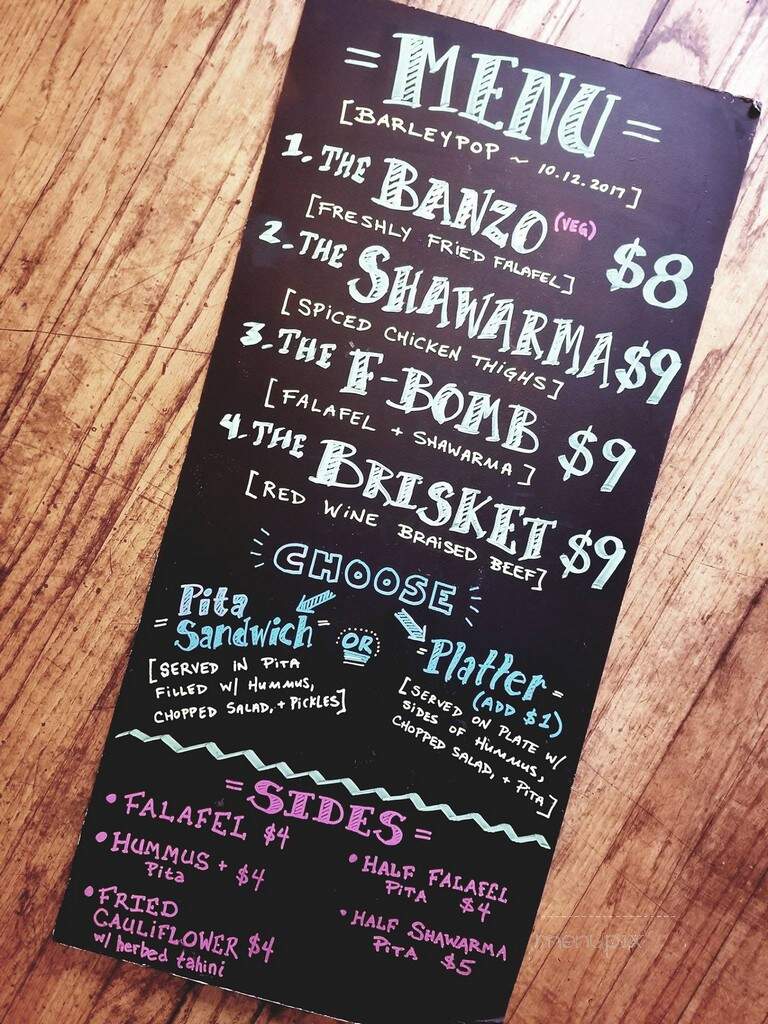 = MENU =
[BARLEYPOP ~ 10.12.2017]
1. THE BANZO (VEG) $8
[FRESHLY FRIED FALAFEL]
2. THE SHAWARMA $9
[SPICED CHICKEN THIGHS]
3. THE F-BOMB $9
[FALAFEL + SHAWARMA]
4. THE BRISKET $9
[RED WINE BRAISED BEEF]
CHOOSE
Pita
= Sandwich =
[SERVED IN PITA
FILLED W/ HUMMUS,
CHOPPED SALAD, + PICKLES]
OR
= Platter =
(ADD $1)
[SERVED ON PLATE W/
SIDES OF HUMMUS,
CHOPPED SALAD, + PITA]
= SIDES =
• FALAFEL $4
• HUMMUS +
Pita $4
• FRIED
CAULIFLOWER $4
w/ herbed tahini
• HALF FALAFEL
PITA $4
• HALF SHAWARMA
PITA $5
menupix